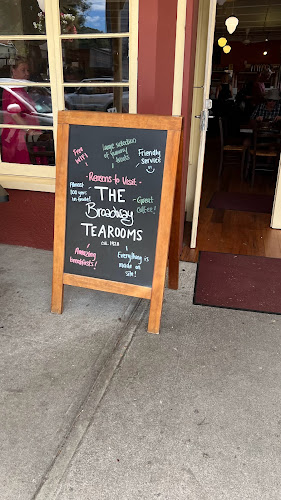 Free
WIFI
large
selection
of yummy
treats
Friendly
service
- Reasons to Visit -
Almost
100 years
in-town!
Great
Coffee!
THE
Broadway
TEAROOMS
est. 1928
Amazing
breakfasts!
Everything is
made on
site!